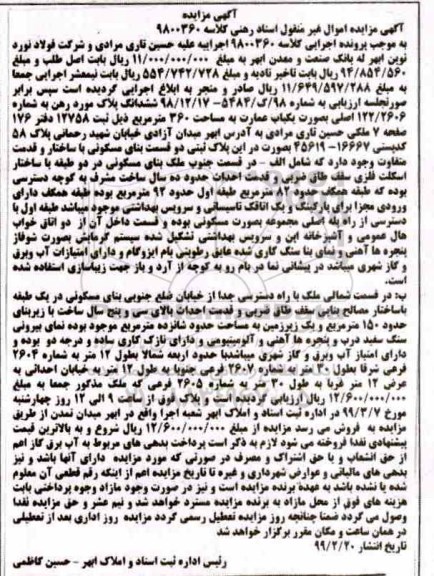 آگهی مزایده
آگهی مزایده اموال غیر منقول اسناد رهنی کلاسه ۹۸۰۰۳۶۰
به موجب پرونده اجرایی کلاسه ۹۸۰۰۳۶۰ اجراییه علیه حسین تاری مرادی و شرکت فولاد نورد
نوین ابهر له بانک صنعت و معدن ابهر به مبلغ ۱۱/۰۰۰/۰۰۰/۰۰۰ ریال بابت اصل طلب و مبلغ
۹۴/۸۵۴/۵۶۰ ریال بابت تاخیر تادیه و مبلغ ۵۵۴/۷۴۲/۷۲۸ ریال بابت نیمعشر اجرایی جمعا
به مبلغ ۱۱/۶۴۹/۵۹۷/۲۸۸ ریال صادر و منجر به ابلاغ اجرایی گردیده است سپس برابر
صورتجلسه ارزیابی به شماره ۹۸/ک/۵۴۸۴- ۹۸/۱۲/۱۷ ششدانگ پلاک مورد رهن به شماره
۱۲۲/۲۶۰۶ اصلی بصورت یکباب عمارت به مساحت ۳۶۰ مترمربع ذیل ثبت ۱۲۷۵۸ دفتر ۱۷۶
صفحه ۷ ملکی حسین تاری مرادی به آدرس ابهر میدان آزادی خیابان شهید رحمانی پلاک ۵۸
کدپستی ۱۶۶۶۷-۴۵۶۱۹ بصورت در این پلاک ثبتی دو قسمت بنای مسکونی با ساختار و قدمت
متفاوت وجود دارد که شامل الف - در قسمت جنوب ملک بنای مسکونی در دو طبقه با ساختار
اسکلت فلزی سقف طاق ضربی و قدمت احداث حدود ده سال ساخت مشرف به کوچه دسترسی
بوده که طبقه همکف حدود ۸۲ مترمربع طبقه اول حدود ۹۲ مترمربع بوده طبقه همکف دارای
ورودی مجزا برای پارکینگ و یک اتاقک تاسیساتی و سرویس بهداشتی موجود میباشد طبقه اول با
دسترسی از راه پله اصلی مجموعه بصورت مسکونی بوده و قسمت داخل آن از دو اتاق خواب
هال عمومی و آشپزخانه اپن و سرویس بهداشتی تشکیل شده سیستم گرمایش بصورت شوفاژ
پنجره ها آهنی و نمای بنا سنگ کاری شده عایق رطوبتی بام ایزوگام و دارای امتیازات آب وبرق
و گاز شهری میباشد در پیشانی نما در بام رو به کوچه از آرد و باز جهت زیباسازی استفاده شده
است.
ب: در قسمت شمالی ملک با راه دسترسی جدا از خیابان ضلع جنوبی بنای مسکونی در یک طبقه
باساختار مصالح بنایی سقف طاق ضربی و قدمت احداث بالای سی و پنج سال ساخت با زیربنای
حدود ۱۵۰ مترمربع و یک زیرزمین به مساحت حدود شانزده مترمربع موجود بوده نمای بیرونی
سنگ سفید درب و پنجره ها آهنی و آلومینیومی و دارای نازک کاری ساده و درجه دو بوده و
دارای امتیاز آب وبرق و گاز شهری میباشدبا حدود اربعه شمالا بطول ۱۲ متر به شماره ۲۶۰۴
فرعی شرقا بطول ۳۰ متر به شماره ۲۶۰۷ فرعی جنوبا به طول ۱۲ متر به خیابان احداثی به
عرض ۱۲ متر غربا به طول ۳۰ متر به شماره ۲۶۰۵ فرعی که ملک مذکور جمعا به مبلغ
۱۲/۶۰۰/۰۰۰/۰۰۰ ریال ارزیابی گردیده است و پلاک فوق از ساعت ۹ الی ۱۲ روز چهارشنبه
مورخ ۹۹/۳/۷ در اداره ثبت اسناد و املاک ابهر شعبه اجرا واقع در ابهر میدان تمدن از طریق
مزایده به فروش می رسد مزایده از مبلغ ۱۲/۶۰۰/۰۰۰/۰۰۰ ریال شروع و به بالاترین قیمت
پیشنهادی نقدا فروخته می شود لازم به ذکر است پرداخت بدهی های مربوط به آب برق گاز اعم
از حق انشعاب و یا حق اشتراک و مصرف در صورتی که مورد مزایده دارای آنها باشد و نیز
بدهی های مالیاتی و عوارض شهرداری و غیره تا تاریخ مزایده اعم از اینکه رقم قطعی آن معلوم
شده یا نشده باشد به عهده برنده مزایده است و نیز در صورت وجود مازاد وجوه پرداختی بابت
هزینه های فوق از محل مازاد به برنده مزایده مسترد خواهد شد و نیم عشر و حق مزایده نقدا
وصول می گردد ضمنا چنانچه روز مزایده تعطیل رسمی گردد مزایده روز اداری بعد از تعطیلی
در همان ساعت و مکان مقرر برگزار خواهد شد
تاریخ انتشار ۹۹/۲/۲۰
رئیس اداره ثبت اسناد و املاک ابهر - حسین کاظمی